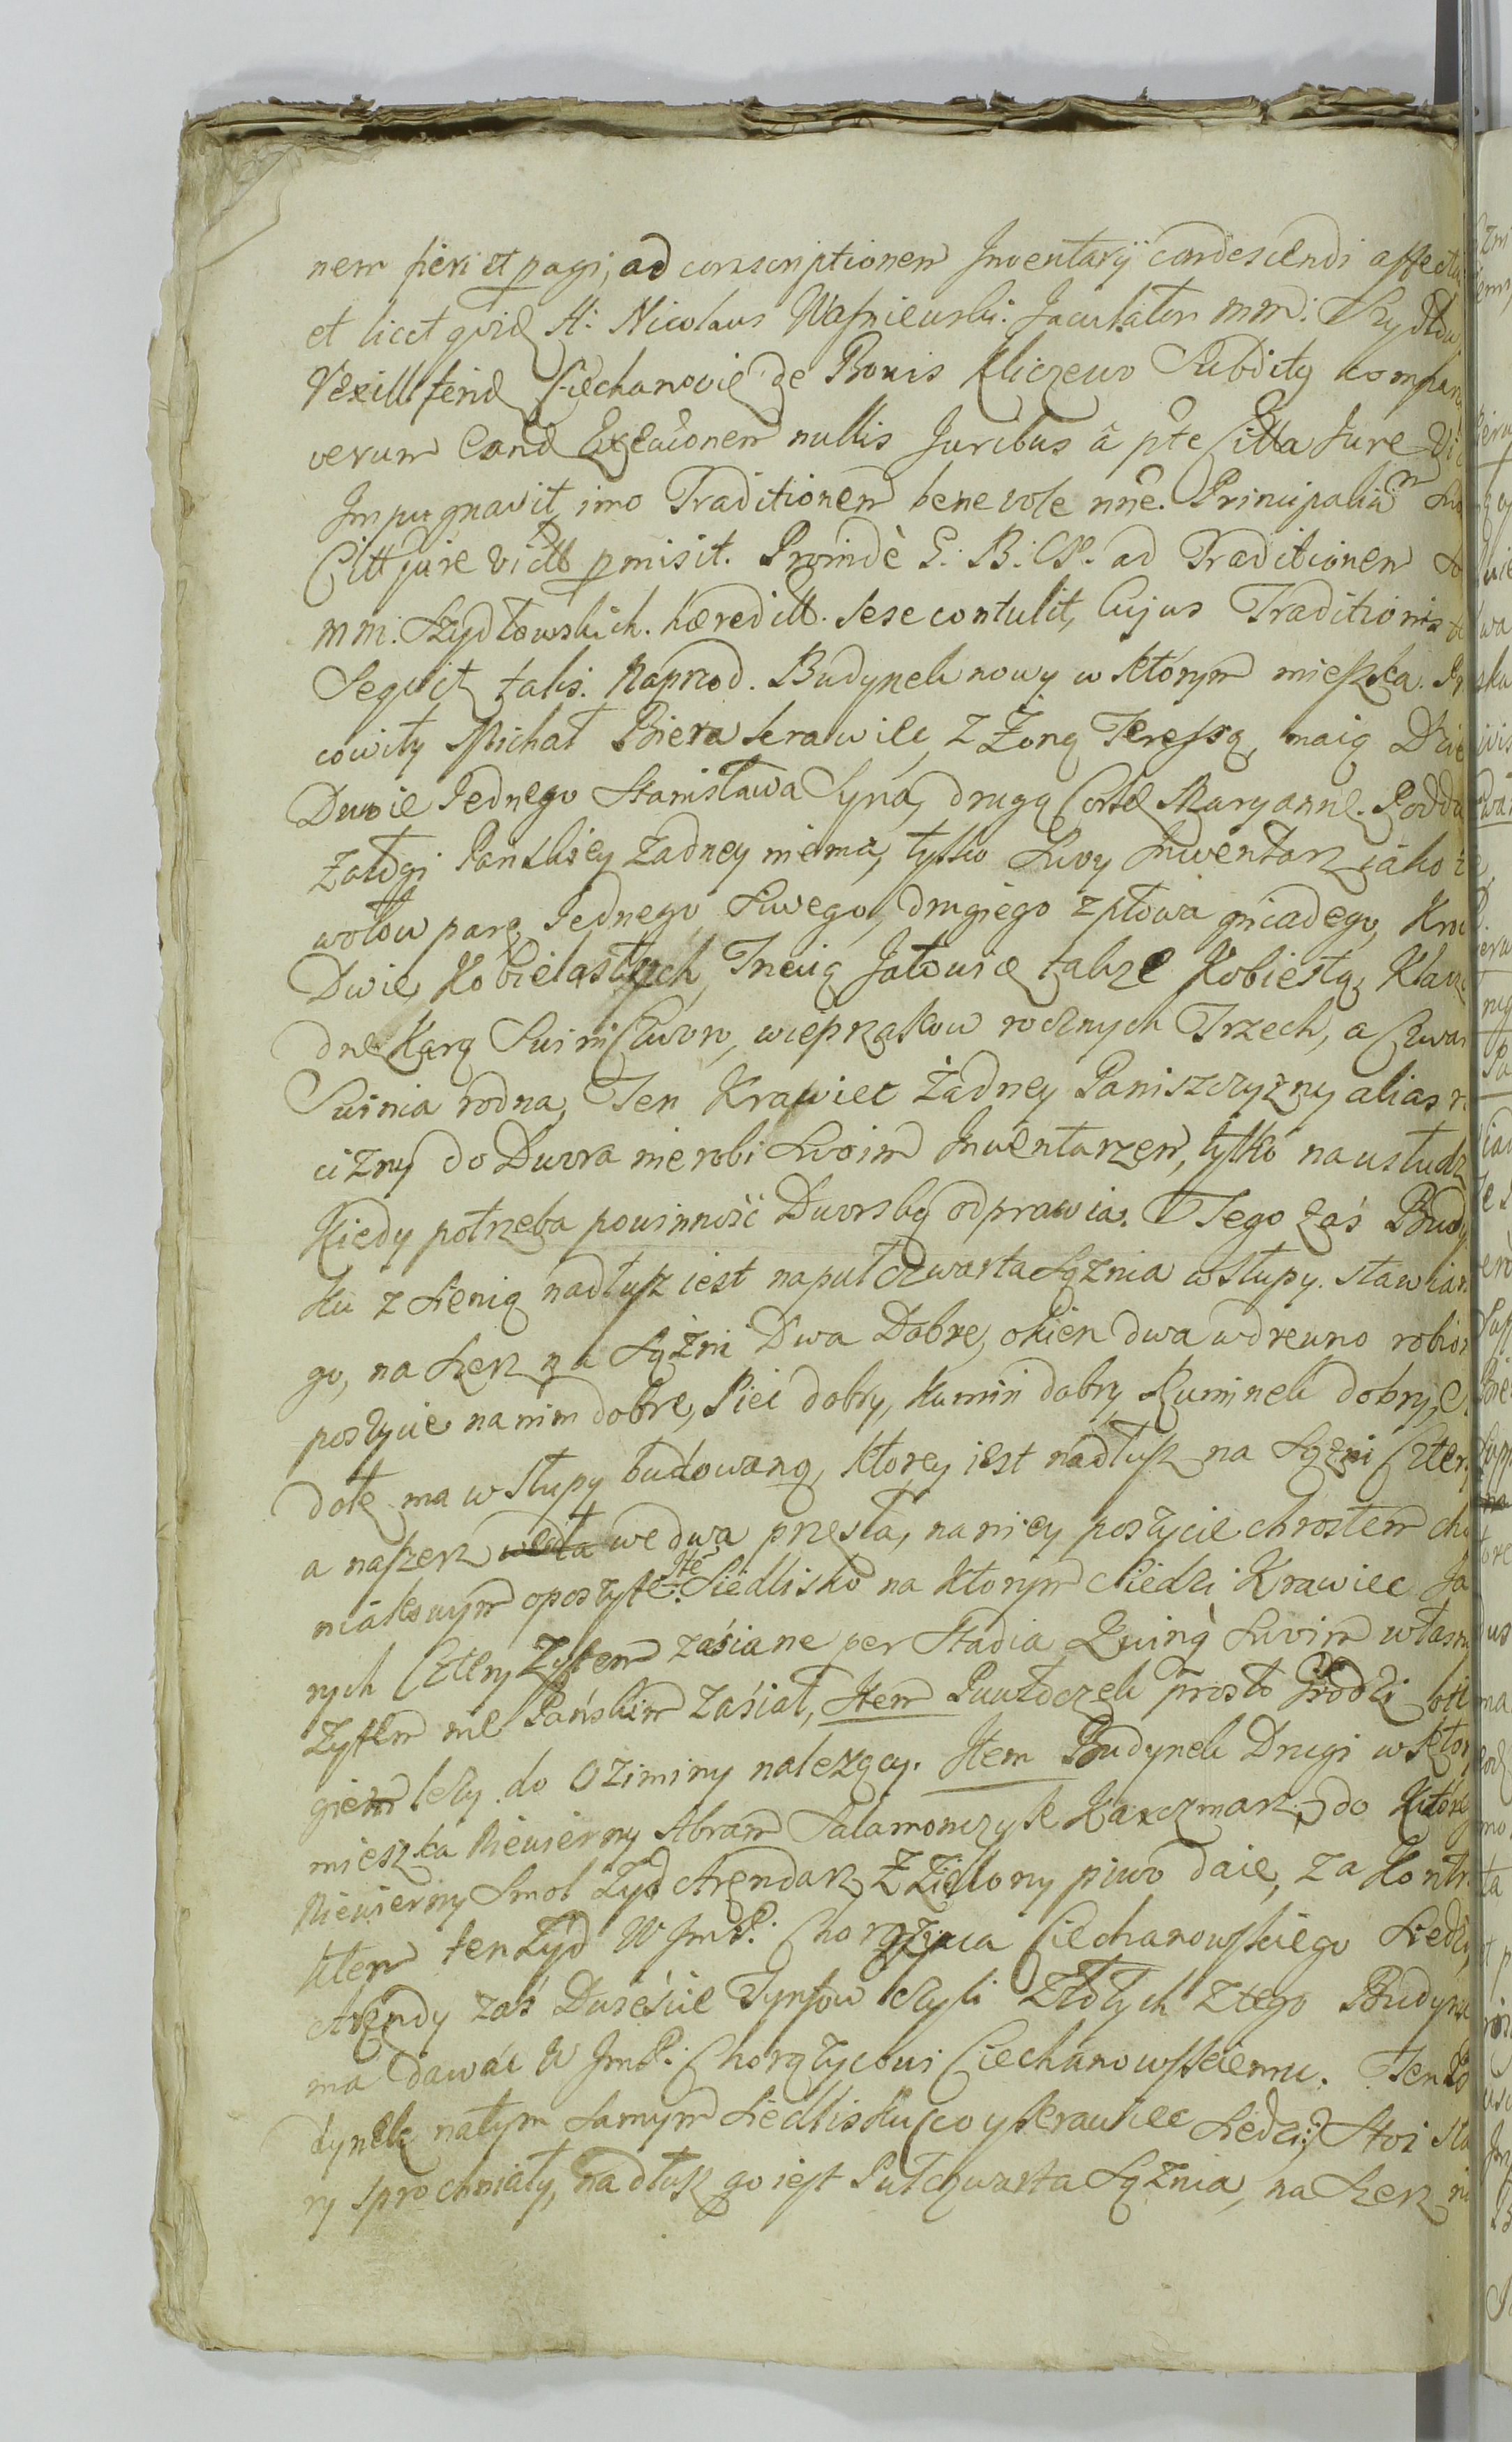 nem fieri et pagi, ad conscriptionem Inventarij condescendi affecta
et licet quid A: Nicolaus Wasniewski. Jaculator mm: Szydłow
Vexillferid Ciechanovie de Bonis Kliczewo Subditq compar
verum eand Exeaionem nullis Juribus â pte Citta Jure Vi
Impugnavit, imo Traditionem benevole nne. Principaliũ
Citt jure vict pmisit. Proindè G: B: CP: ad Traditionem
mm. Szydłowskich. hæreditt. sese contulit, Cujus Traditionis
Sequit talis. Naprzod. Budynek nowy w którym mieszka. Pr
cowity Michał Biera krawiec, z Żoną Teressą, maią Dzie
Dwoie Jednego Stanisława Syna, drugą Corkę Maryannę. Podda
Załogi Panskiey żadney niema, tylko Swoy Inwentarz iáko
wołow parę Jednego Siwego, drugiego zpłowa gniadego, Kro
Dwie, Kobielastych, Trzecią Jałowicę także Kobiestą, Klacz
dnę Karą Swini Czworo, wieprzakow rocznych Trzech, a Czwar
Swinia rodna, Ten Krawiec żadney Paniszczyzny alias r
cizny do Dwora nie robi Swoim Inwentarzem, tylko na usłudz
Kiedy potrzeba powinność Dworską odprawia. Tego zaś Budy
ku z Sienią nadłusz iest napuł czwarta Sążnia w słupy. stawian
go, na Szerz na Sążni Dwa Dobre, okien dwa w drewno robion
poszycie na nim dobre, Piec dobry, Kumin dobry Kuminek dobry,
dołę ma w słupy budowaną, ktorey iest nadłusz na Sążni Czter
a naszerz we dwa przesła, na niey poszycie chrostem cho
niakowym oposzyte. Ité Siedlisko na ktorym Siedzi Krawiec
rych Cztery Zytem zasiane per Stadia Quinq̀ Swoim własn
Zytem nie Pańskim zasiał, Item Puwłoczek prosto Grodzi
giem lezy do Oziminy należący. Item Budynek Drugi w ktor
mieszka Niewierny Abram Salamonczyk Karczmarz, do Które
Niewierny Smol Żyd Arendarz Z Zielony piwo daie, za Kontr
ktem ten Żyd W JmP: Chorążyca Ciechanowskiego Siedzi,
Arendy zaś Dwieście Tynfow czyli Złotych z tego Budyn
ma dawać W JmP: Chorążycowi Ciechanowskiemu. Ten
dynek natym Samym Siedlisku (co y krawiec Siedzi) Stoi sta
ry sprochniały, nadłusz go iest Pułczwarta Sążnia, na Szerz na